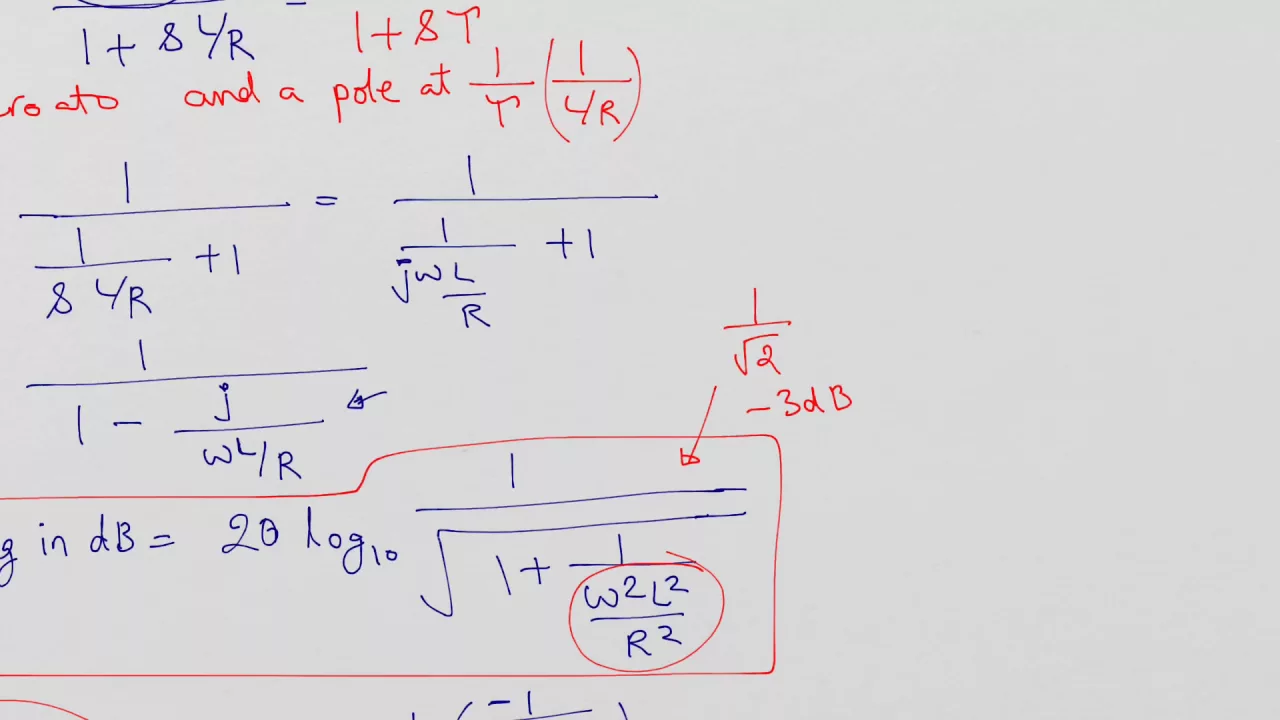 1 + s L/R   1 + sT
and a pole at 1/T (1/(L/R))
1/(1/(s L/R) + 1) = 1/(1/(jωL/R) + 1)
1/√2
1/(1 - j/(ωL/R))
-3dB
g in dB = 20 log₁₀ 1/√(1 + 1/(ω²L²/R²))
-1